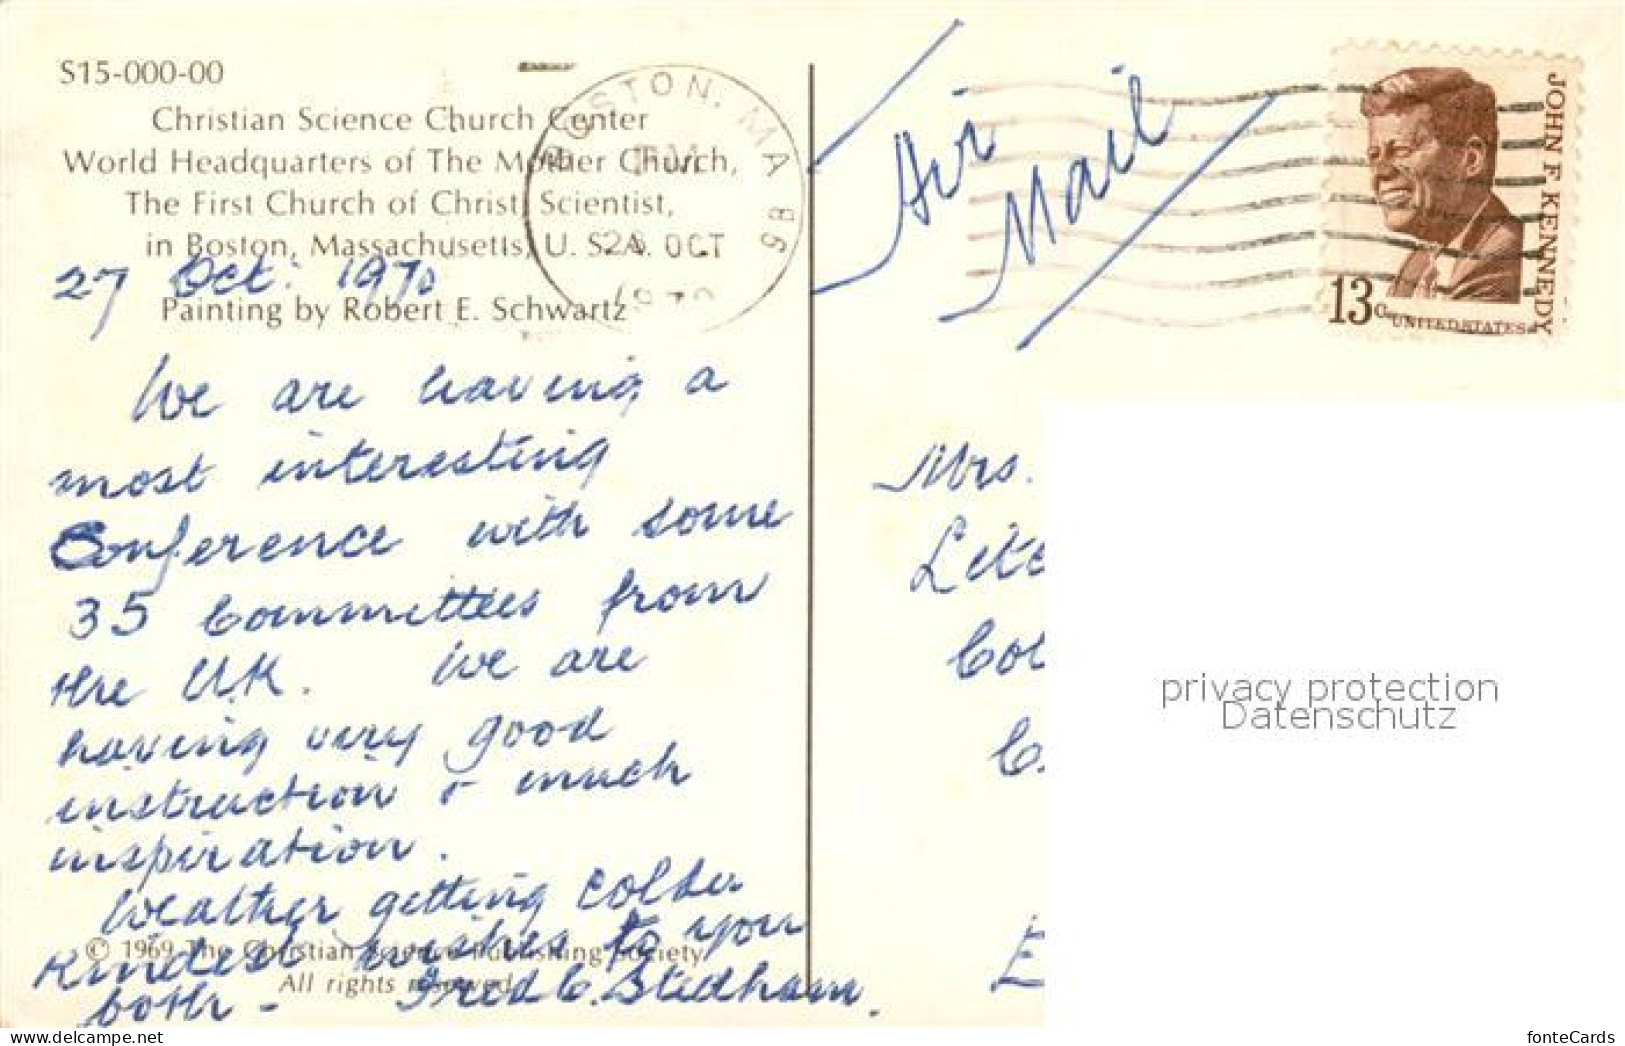 S15-000-00
Christian Science Church Center
World Headquarters of The Mother Church,
The First Church of Christ, Scientist,
in Boston, Massachusetts, U. S. A.
27 Oct: 1970
Painting by Robert E. Schwartz
We are having a
most interesting
Conference with some
35 Committees from
the U.K. We are
having very good
instruction & much
inspiration.
Weather getting colder
Kindest wishes to you
both – Fred C. Stedham.
© 1969 The Christian Science Publishing Society
All rights reserved
BOSTON, MA
PM
28 OCT
1970
Air
Mail
JOHN F. KENNEDY
13c UNITED STATES
Mrs.
privacy protection
Datenschutz
www.delcampe.net
fonteCards